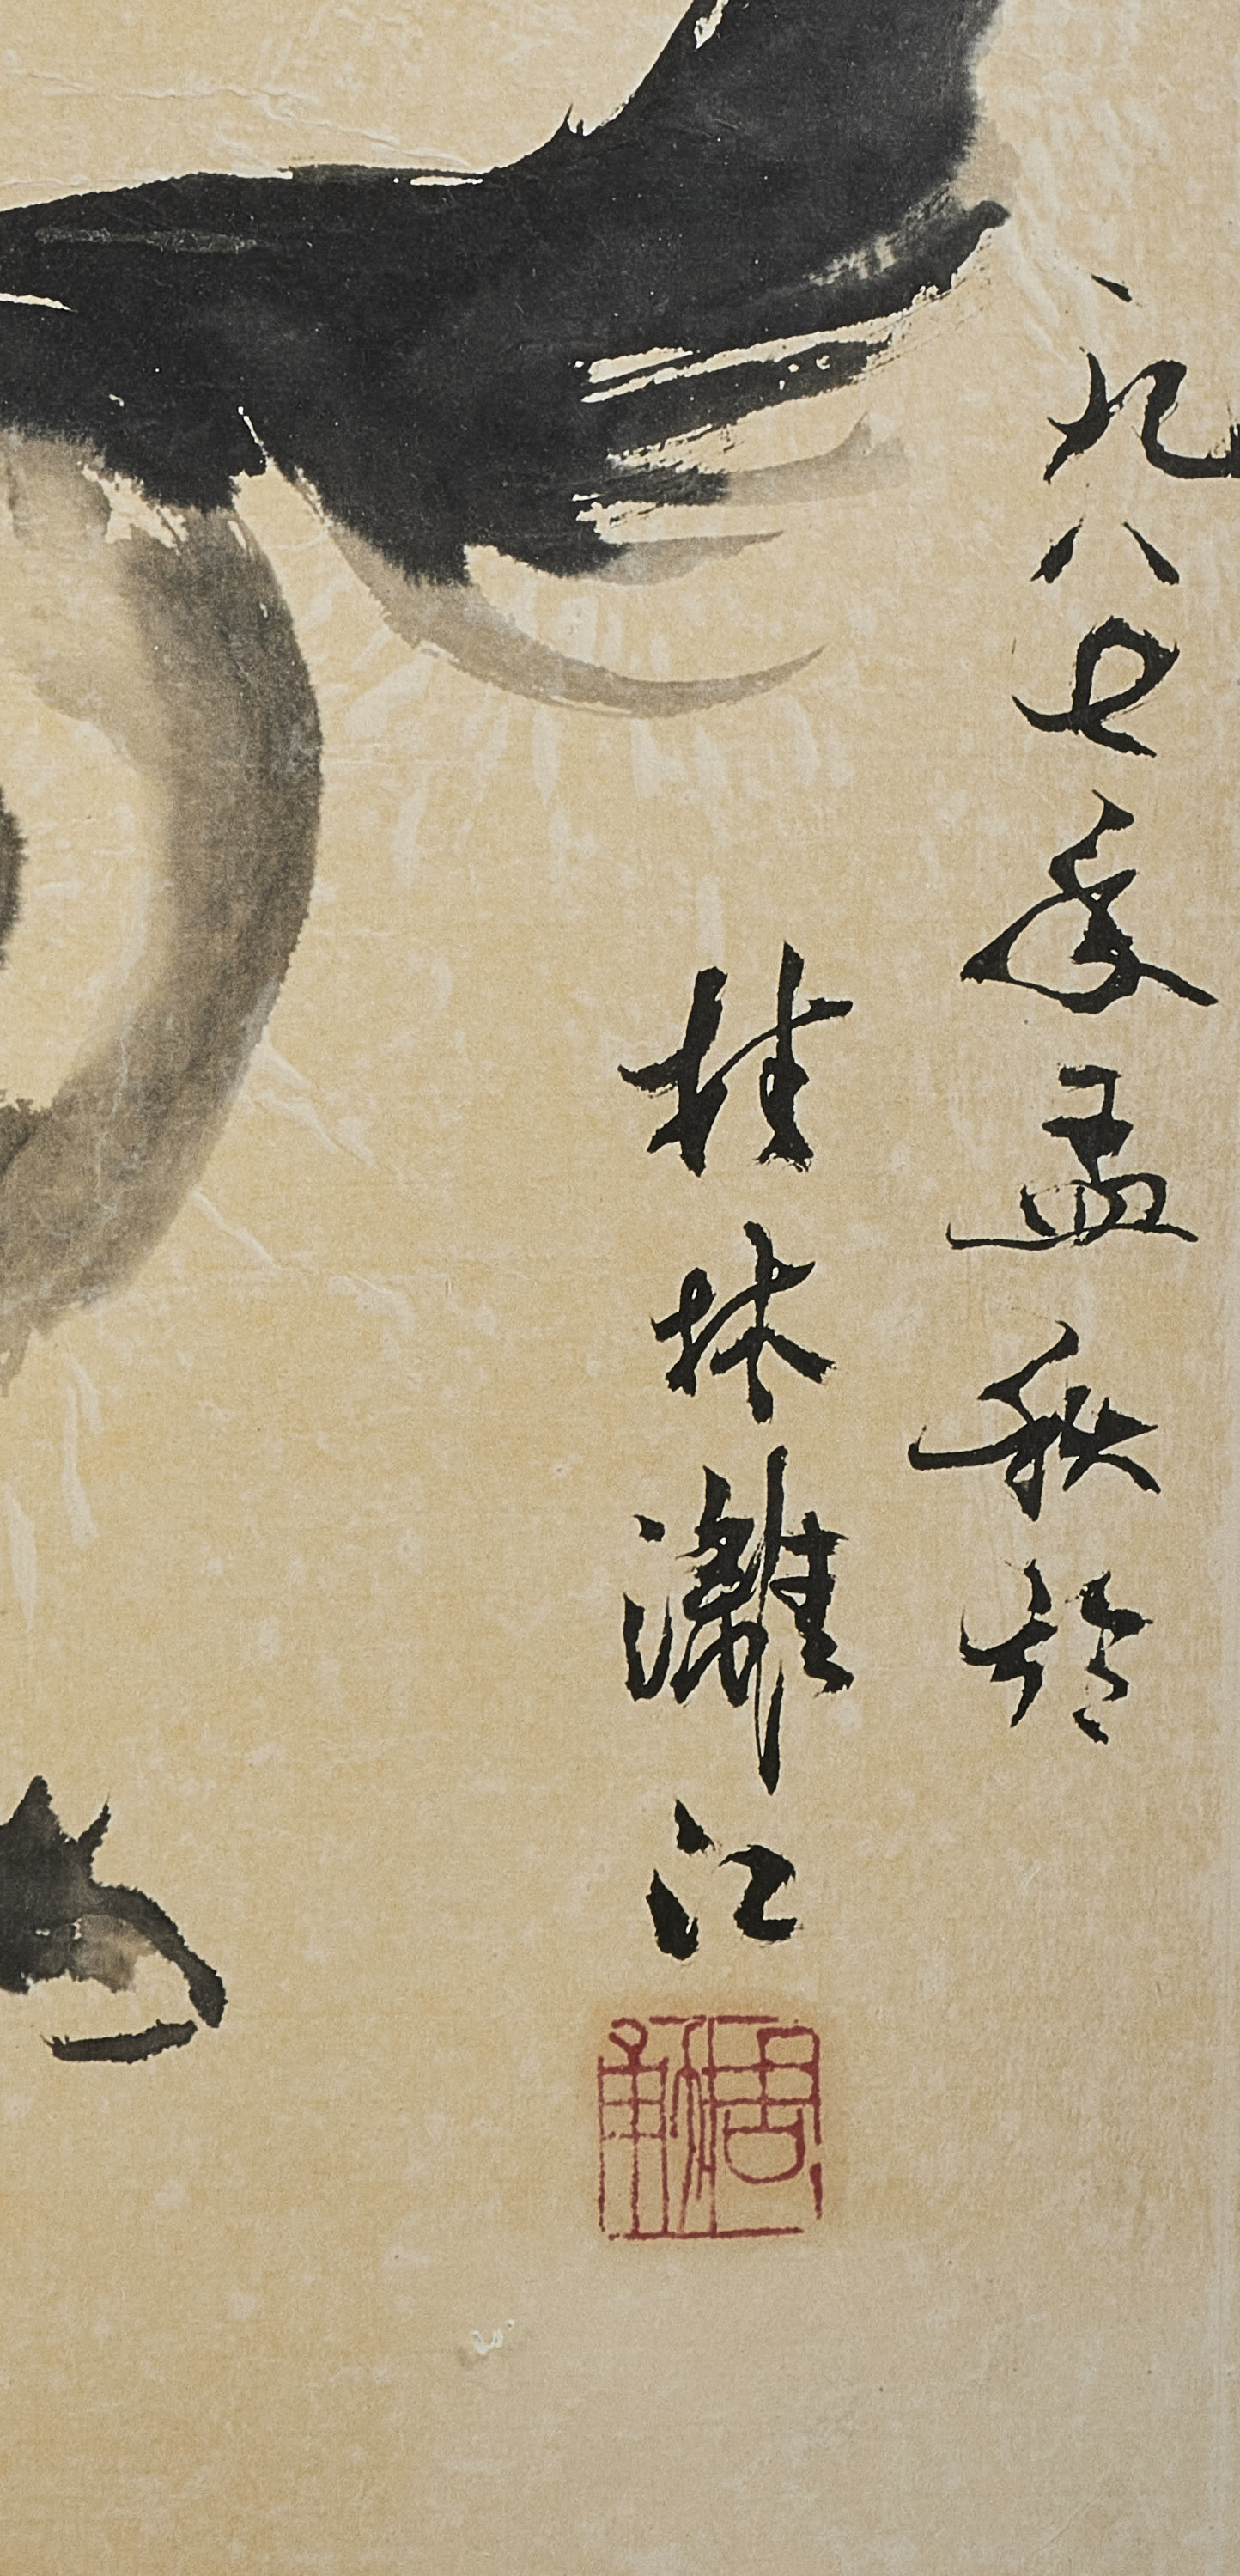 一九八七年孟秋於
桂林漓江